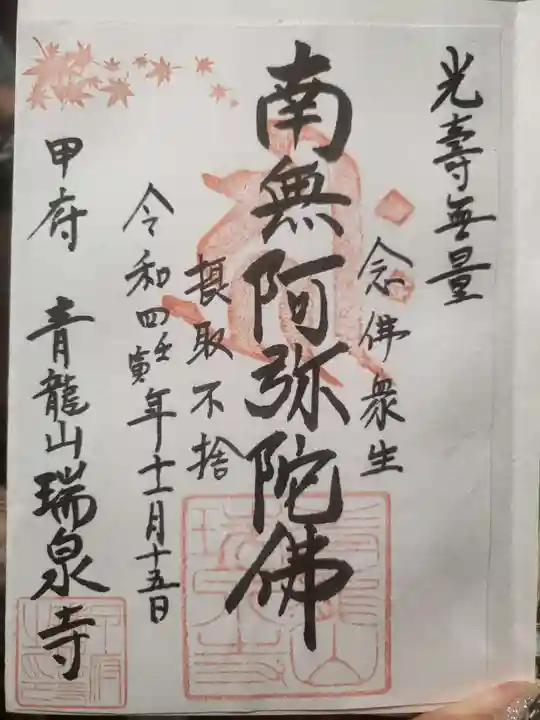 光壽無量
念佛衆生
南無阿弥陀佛
摂取不捨
令和四壬寅年十一月十五日
甲府 青龍山瑞泉寺
青龍山
瑞泉寺